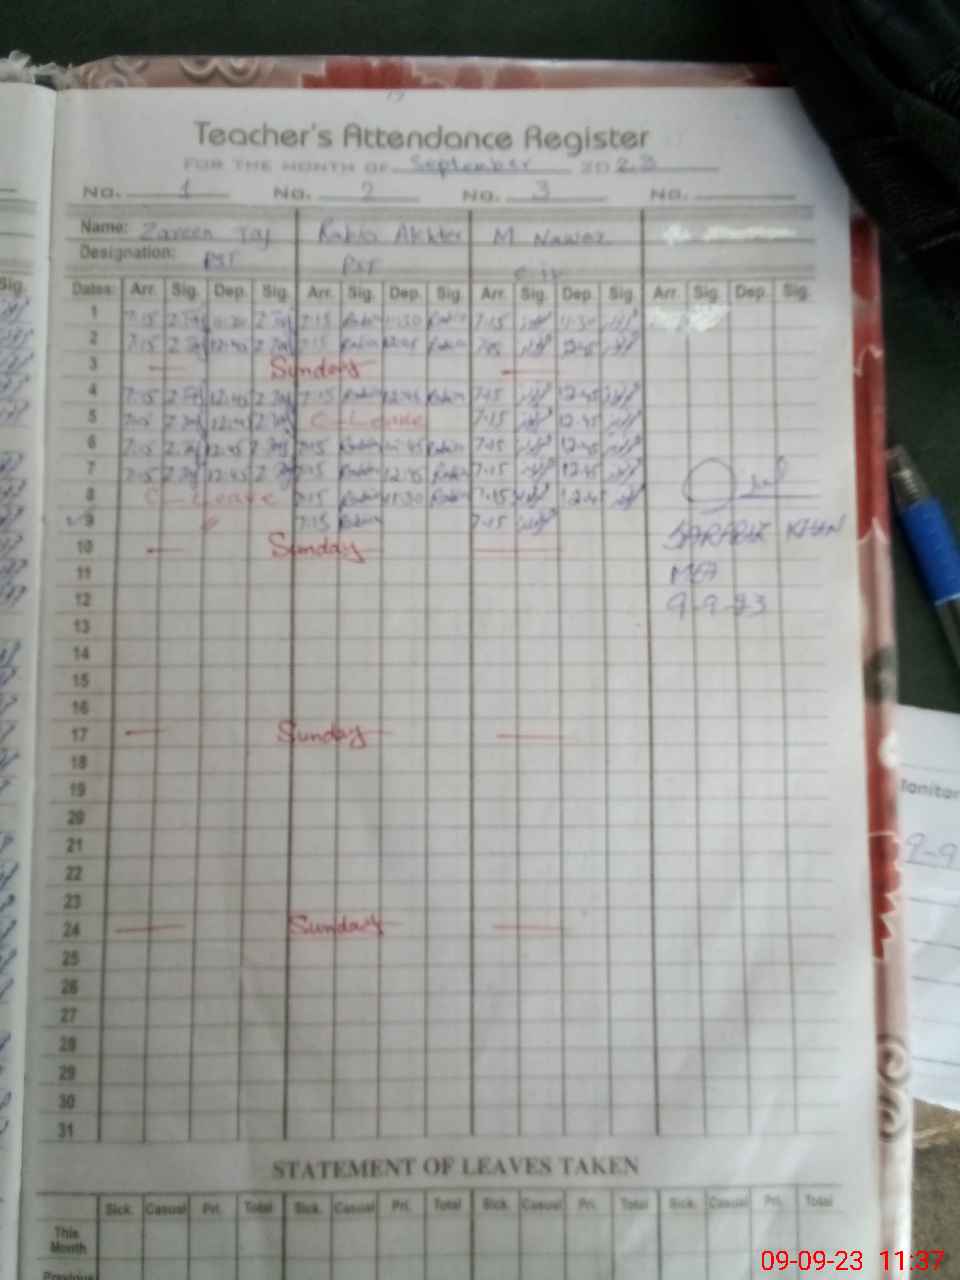 Teacher's Attendance Register
FOR THE MONTH OF September 2023
No. 1 No. 2 No. 3 No.
Name: Zareen Taj Rabia Akhter M Nawaz
Designation: PST PST
Dates: Arr. Sig. Dep. Sig. Arr. Sig. Dep. Sig. Arr. Sig. Dep. Sig. Arr. Sig. Dep. Sig.
1 7:15 Z Taj 11:30 Z Taj 7:15 Rabia 11:30 Rabia 7:15 11:30
2 7:15 Z Taj 12:45 Z Taj 7:15 Rabia 12:45 Rabia 12:45
3 — Sunday —
4 7:15 Z Taj 12:45 Z Taj 7:15 Rabia 12:45 Rabia 7:15 12:45
5 7:15 Z Taj 12:45 Z Taj C-Leave 7:15 12:45
6 7:15 Z Taj 12:45 Z Taj 7:15 Rabia 12:45 Rabia 7:15 12:45
7 7:15 Z Taj 12:45 Z Taj 7:15 Rabia 12:45 Rabia 7:15 12:45
8 C-Leave 7:15 Rabia 11:30 Rabia 7:15 12:45
9 7:15 Rabia 7:15
10 — Sunday —
KHAN
11
MEA
12
9-9-23
13
14
15
16
17 — Sunday —
18
19
20
21
22
23
24 — Sunday —
25
26
27
28
29
30
31
STATEMENT OF LEAVES TAKEN
Sick. Casual Pri. Total Sick. Casual Pri. Total Sick. Casual Pri. Total Sick. Casual Pri. Total
This
Month
Previous
Sig.
9-9
09-09-23 11:37